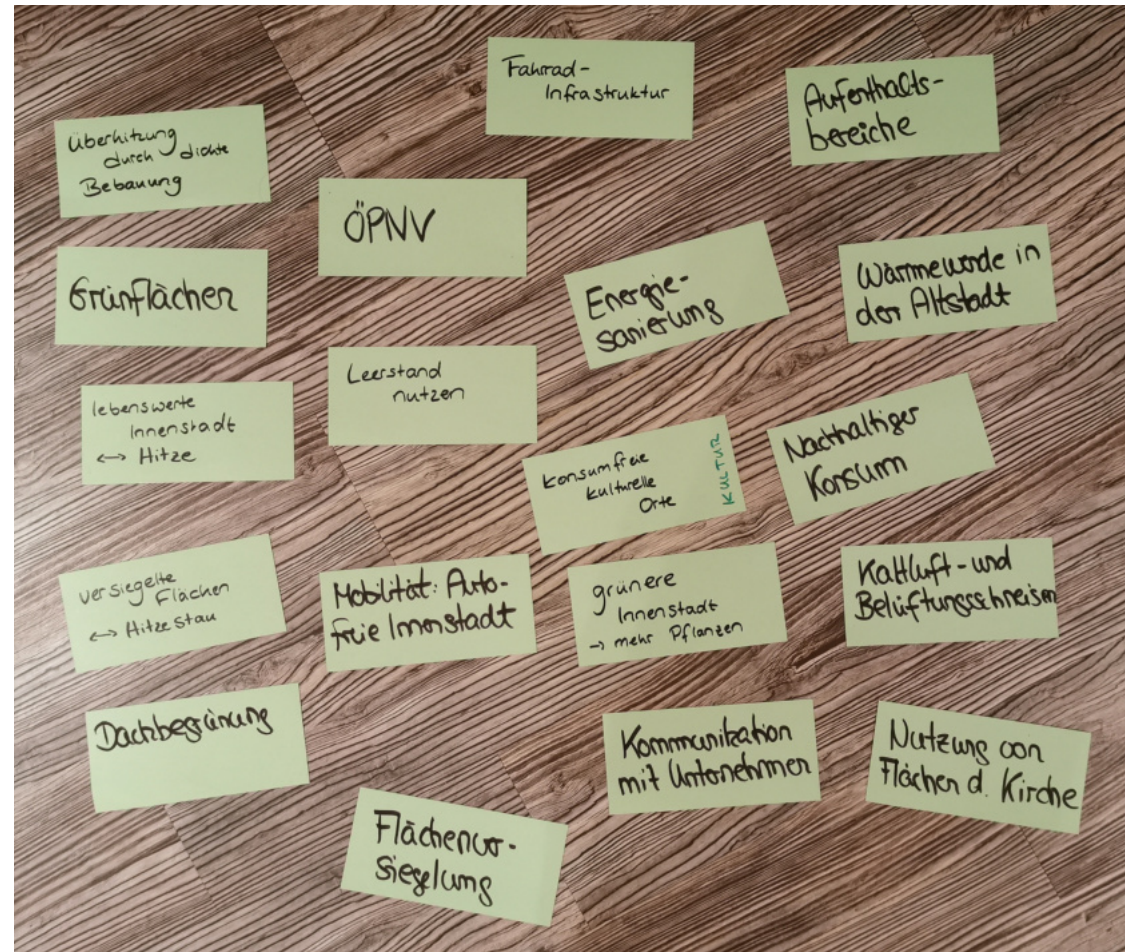 Fahrrad-
Infrastruktur
Aufenthalts-
bereiche
Überhitzung
durch dichte
Bebauung
ÖPNV
Grünflächen
Energie-
sanierung
Wärmewende in
der Altstadt
Leerstand
nutzen
lebenswerte
Innenstadt
↔ Hitze
konsumfreie
kulturelle
Orte
KULTUR
Nachhaltiger
Konsum
versiegelte
Flächen
↔ Hitzestau
Mobilität: Auto-
freie Innenstadt
grünere
Innenstadt
→ mehr Pflanzen
Kaltluft- und
Belüftungsschneisen
Dachbegrünung
Kommunikation
mit Unternehmen
Nutzung von
Flächen d. Kirche
Flächenver-
siegelung